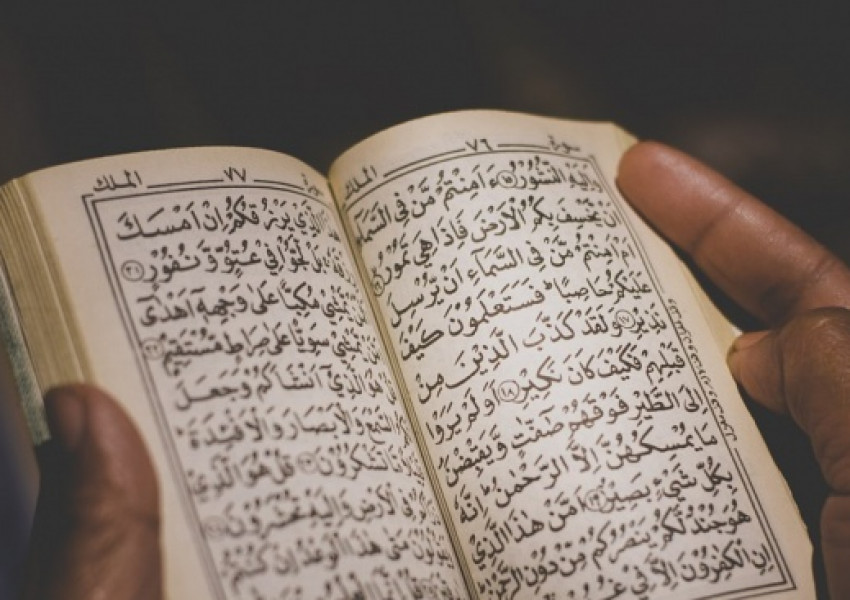 سورة ٧٦ الملك
وَاِلَيْهِ النُّشُوْرُ ﴿١٥﴾ ءَاَمِنْتُمْ مَّنْ فِى السَّمَآءِ
اَنْ يَّخْسِفَ بِكُمُ الْاَرْضَ فَاِذَا هِىَ تَمُوْرُ
اَمْ اَمِنْتُمْ مَّنْ فِى السَّمَآءِ اَنْ يُّرْسِلَ
عَلَيْكُمْ حَاصِبًا فَسَتَعْلَمُوْنَ كَيْفَ
نَذِيْرِ ﴿١٧﴾ وَلَقَدْ كَذَّبَ الَّذِيْنَ مِنْ
قَبْلِهِمْ فَكَيْفَ كَانَ نَكِيْرِ ﴿١٨﴾ اَوَلَمْ يَرَوْا
اِلَى الطَّيْرِ فَوْقَهُمْ صٰٓفّٰتٍ وَّيَقْبِضْنَ
مَا يُمْسِكُهُنَّ اِلَّا الرَّحْمٰنُ اِنَّهٗ
بِكُلِّ شَىْءٍ بَصِيْرٌ ﴿١٩﴾ اَمَّنْ هٰذَا الَّذِىْ
هُوَ جُنْدٌ لَّكُمْ يَنْصُرُكُمْ مِّنْ دُوْنِ الرَّحْمٰنِ
اِنِ الْكٰفِرُوْنَ اِلَّا فِىْ
٧٧ الملك
الَّذِىْ يَرْزُقُكُمْ اِنْ اَمْسَكَ
بَلْ لَّجُّوْا فِىْ عُتُوٍّ وَّنُفُوْرٍ ﴿٢١﴾
يَّمْشِىْ مُكِبًّا عَلٰى وَجْهِهٖٓ اَهْدٰٓى
يَّمْشِىْ سَوِيًّا عَلٰى صِرَاطٍ مُّسْتَقِيْمٍ ﴿٢٢﴾
هُوَ الَّذِىْٓ اَنْشَاَكُمْ وَجَعَلَ
السَّمْعَ وَالْاَبْصَارَ وَالْاَفْـِٕدَةَ
مَّا تَشْكُرُوْنَ ﴿٢٣﴾ قُلْ هُوَ الَّذِىْ
فِى الْاَرْضِ وَاِلَيْهِ تُحْشَرُوْنَ
مَتٰى هٰذَا الْوَعْدُ اِنْ كُنْتُمْ